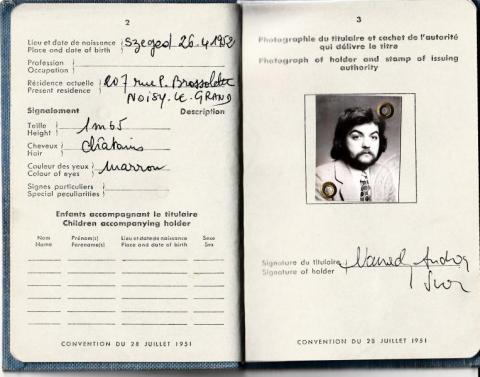 2
Lieu et date de naissance Szeged 26.4.1952
Place and date of birth
Profession
Occupation
Résidence actuelle 207 rue P. Brossolette
Present residence NOISY-LE-GRAND
Signalement Description
Taille 1m65
Height
Cheveux châtains
Hair
Couleur des yeux marron
Colour of eyes
Signes particuliers
Special peculiarities
Enfants accompagnant le titulaire
Children accompanying holder
Nom Prénom(s) Lieu et date de naissance Sexe
Name Forename(s) Place and date of birth Sex
CONVENTION DU 28 JUILLET 1951
3
Photographie du titulaire et cachet de l'autorité
qui délivre le titre
Photograph of holder and stamp of issuing
authority
Signature du titulaire
Signature of holder
CONVENTION DU 28 JUILLET 1951